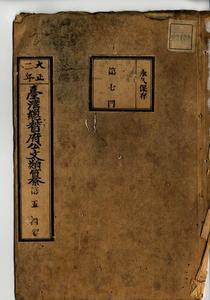 永久保存
第七門
大正二年
臺灣總督府公文類纂
第五